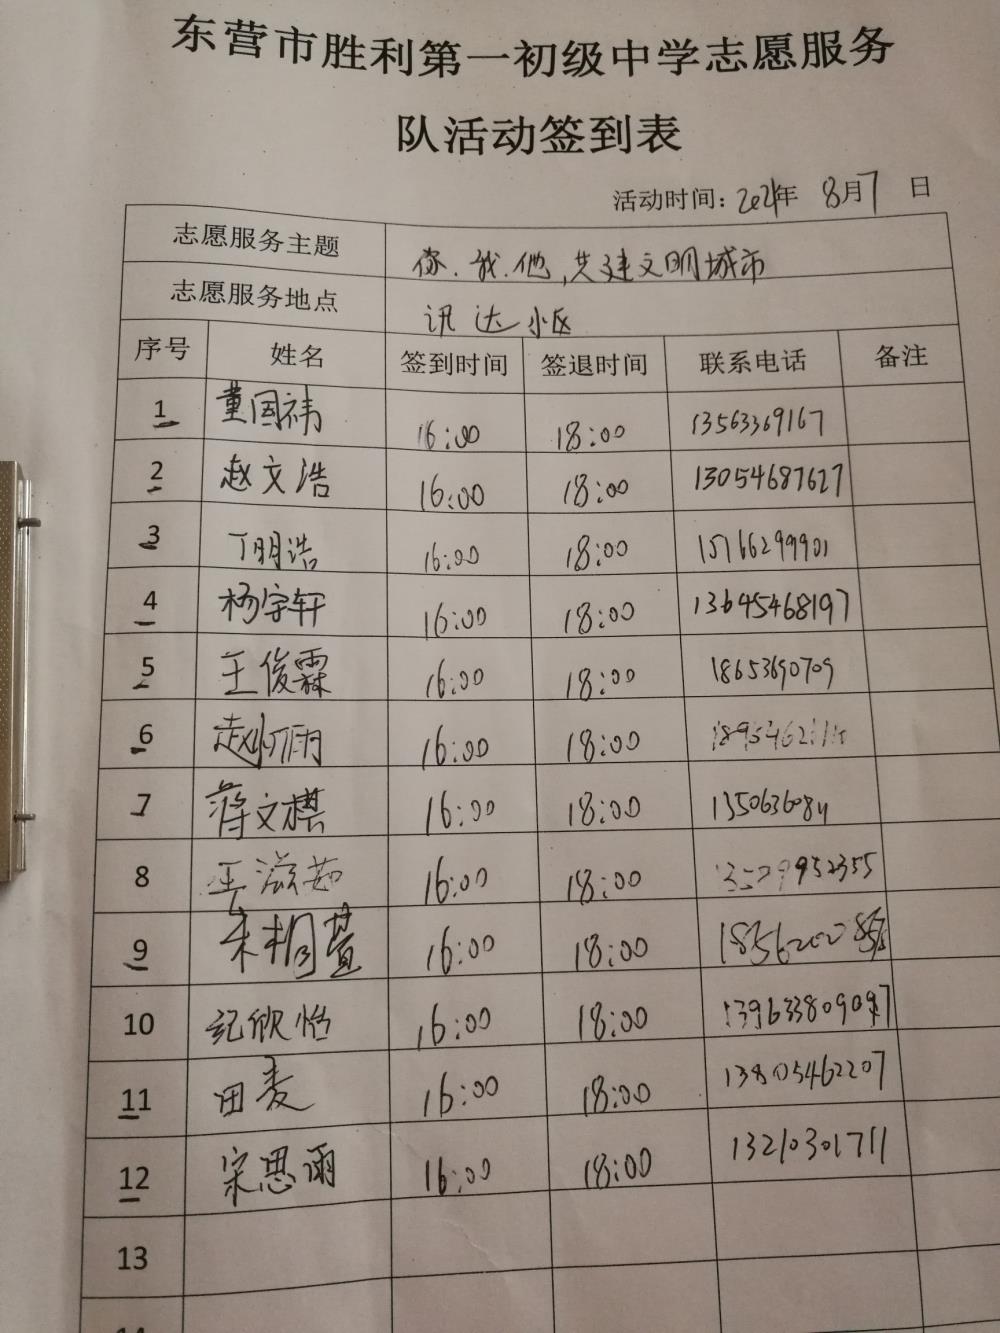 东营市胜利第一初级中学志愿服务
队活动签到表
活动时间：2021年 8月7 日
志愿服务主题 你.我.他,共建文明城市
志愿服务地点 讯达小区
序号 姓名 签到时间 签退时间 联系电话 备注
1 董国祎 16:00 18:00 13563369167
2 赵文浩 16:00 18:00 13054687627
3 丁明浩 16:00 18:00 15766299901
4 杨宇轩 16:00 18:00 13645468197
5 王俊霖 16:00 18:00 18653690709
6 16:00 18:00
7 蒋文棋 16:00 18:00
8 王滋茹 16:00 18:00
9 朱桐萱 16:00 18:00
10 纪欣怡 16:00 18:00
11 田麦 16:00 18:00 13805462207
12 宋思雨 16:00 18:00 13210301711
13